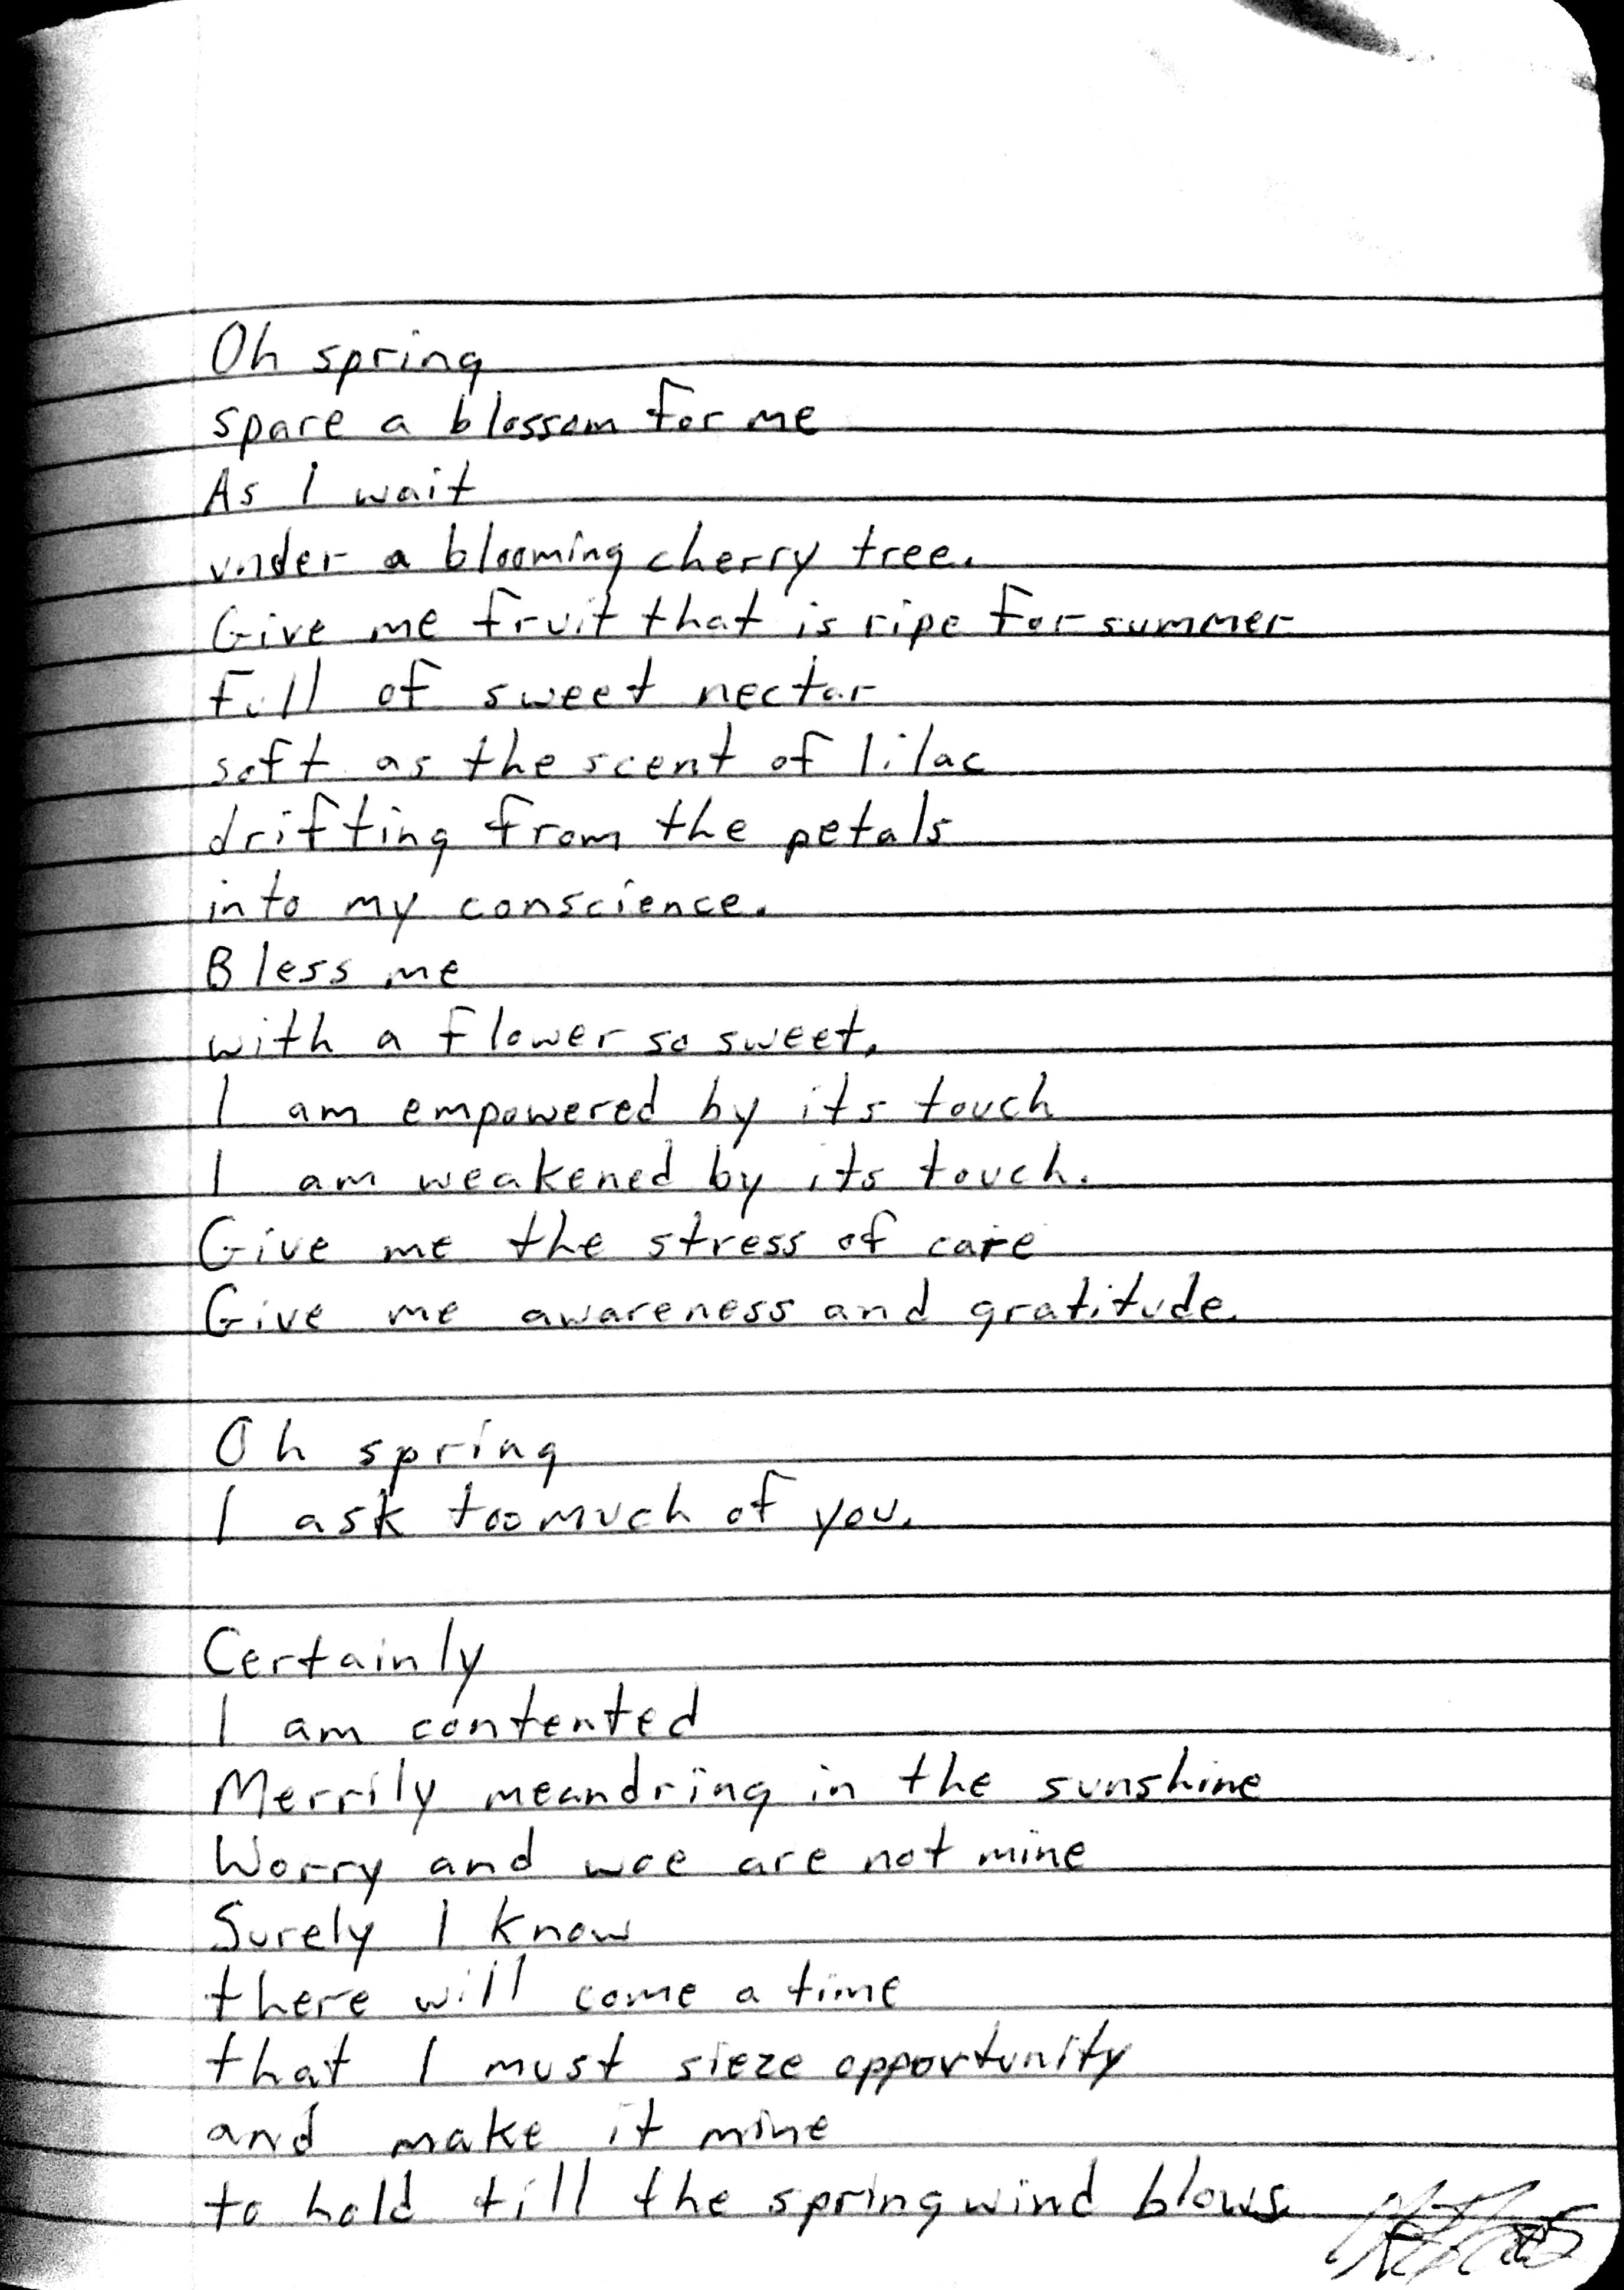 Oh spring
spare a blossom for me
As I wait
under a blooming cherry tree.
Give me fruit that is ripe for summer
full of sweet nectar
soft as the scent of lilac
drifting from the petals
into my conscience.
Bless me
with a flower so sweet,
I am empowered by its touch
I am weakened by its touch.
Give me the stress of care
Give me awareness and gratitude.
Oh spring
I ask too much of you.
Certainly
I am contented
Merrily meandring in the sunshine
Worry and woe are not mine
Surely I know
there will come a time
that I must sieze opportunity
and make it mine
to hold till the spring wind blows